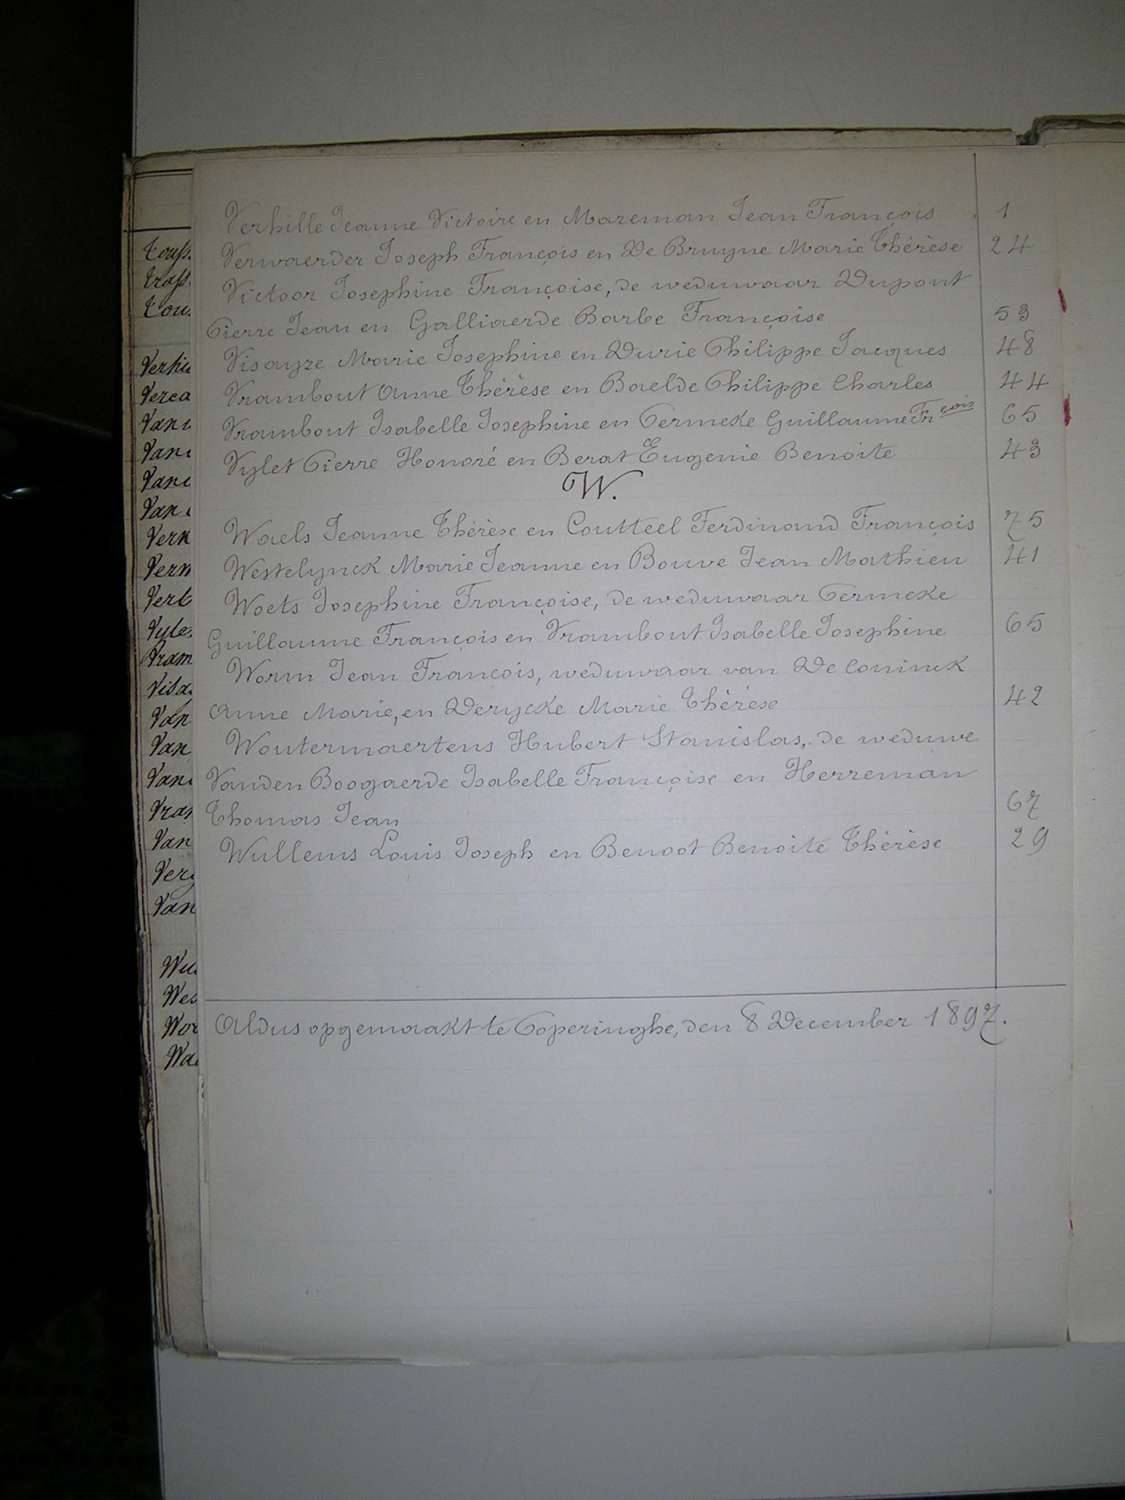 Verhille Jeanne Victoire en Mareman Jean François 1
Verwaerder Joseph François en De Bruyne Marie Thérèse 24
Victoor Josephine Françoise, de weduwaar Dupont
Pierre Jean en Galliaerde Barbe Françoise 53
Visayze Marie Josephine en Durie Philippe Jacques 48
Vrambout Anne Thérèse en Baelde Philippe Charles 44
Vrambout Isabelle Josephine en Permeke Guillaume Frçois 65
Vylet Pierre Honoré en Berat Eugenie Benoite 43
W.
Waels Jeanne Thérèse en Coutteel Ferdinand François 75
Westelynck Marie Jeanne en Bouve Jean Mathieu 41
Woets Josephine Françoise, de weduwaar Permeke
Guillaume François en Vrambout Isabelle Josephine 65
Worm Jean François, weduwaar van De Coninck
Anne Marie, en Derycke Marie Thérèse 42
Woutermaertens Hubert Stanislas, de weduwe
Vanden Boogaerde Isabelle Françoise en Herreman
Thomas Jean 67
Wullems Louis Joseph en Benoot Benoite Thérèse 29
Aldus opgemaakt te Poperinghe, den 8 December 1897.